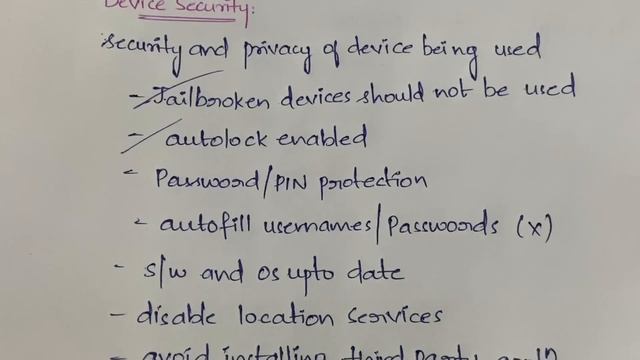 Device Security:
Security and privacy of device being used
- Jailbroken devices should not be used
- autolock enabled
- Password/PIN protection
- autofill usernames/Passwords (x)
- s/w and os upto date
- disable location services
- avoid installing third party